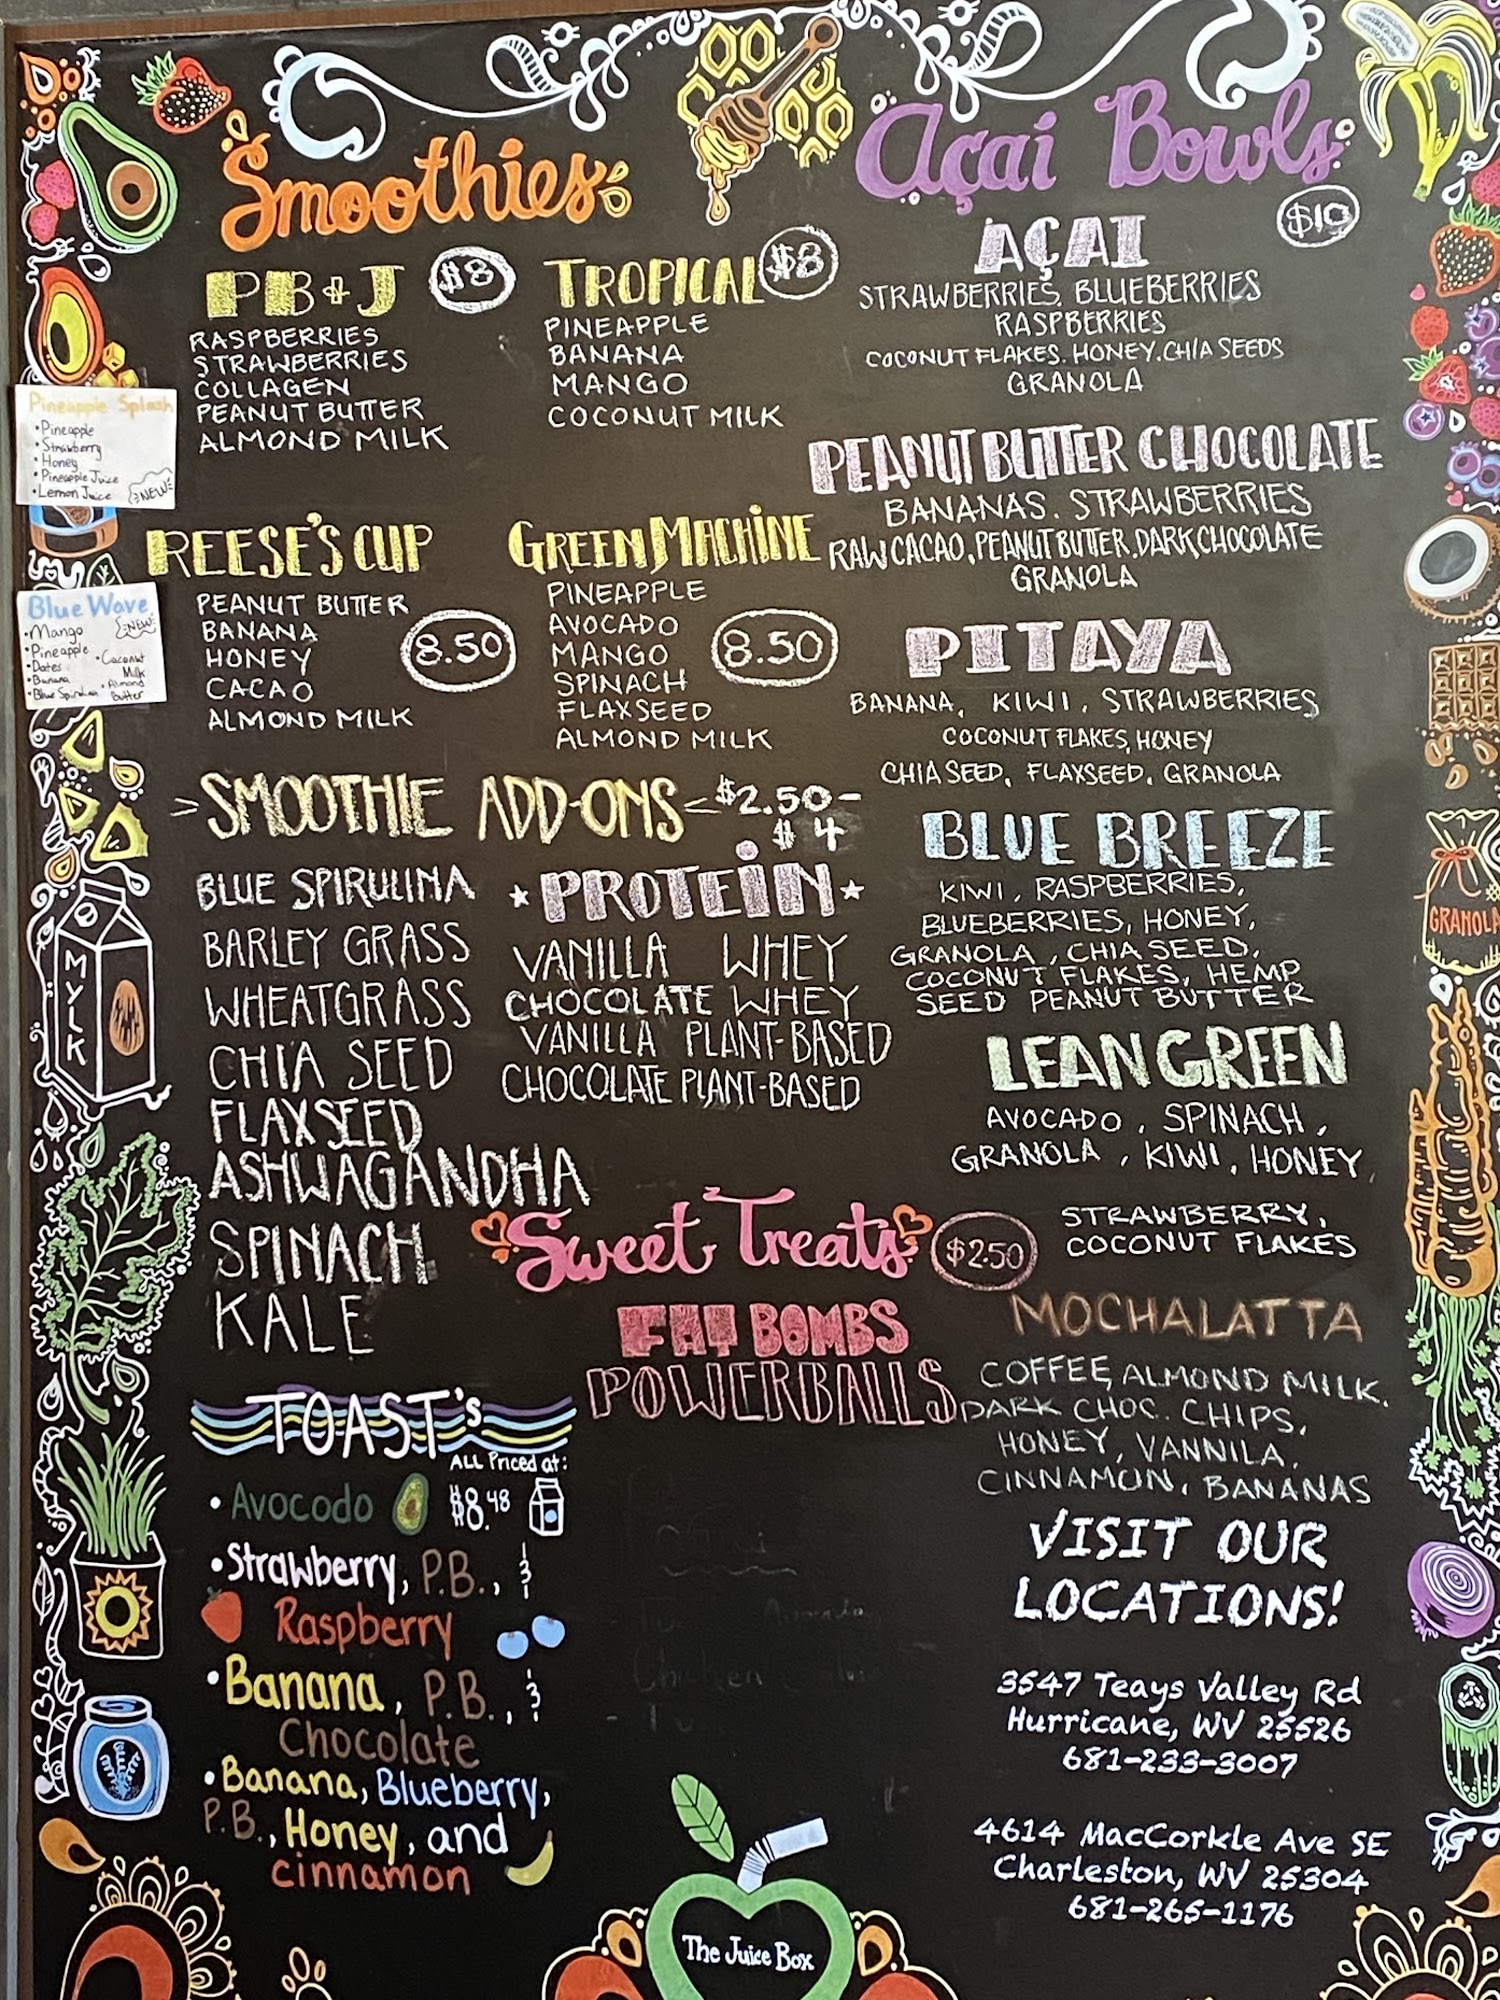 Smoothies
PB+J $8
RASPBERRIES
STRAWBERRIES
COLLAGEN
PEANUT BUTTER
ALMOND MILK
TROPICAL $8
PINEAPPLE
BANANA
MANGO
COCONUT MILK
Pineapple Splash
• Pineapple
• Strawberry
• Honey
• Pineapple Juice
• Lemon Juice
NEW
Blue Wave
NEW
• Mango
• Pineapple
• Dates
• Banana
• Blue Spirulina
• Coconut
Milk
• Almond
Butter
REESE'S CUP
PEANUT BUTTER
BANANA
HONEY
CACAO
ALMOND MILK
8.50
GREEN MACHINE
PINEAPPLE
AVOCADO
MANGO
SPINACH
FLAXSEED
ALMOND MILK
8.50
=SMOOTHIE ADD-ONS= $2.50-
$4
BLUE SPIRULINA
BARLEY GRASS
WHEATGRASS
CHIA SEED
FLAXSEED
ASHWAGANDHA
SPINACH
KALE
PROTEIN
VANILLA WHEY
CHOCOLATE WHEY
VANILLA PLANT-BASED
CHOCOLATE PLANT-BASED
MYLK
Sweet Treats $2.50
FAT BOMBS
POWERBALLS
TOAST's
ALL Priced at:
• Avocodo $8.48
• Strawberry, P.B., &
Raspberry
• Banana, P.B., &
Chocolate
• Banana, Blueberry,
P.B., Honey, and
cinnamon
Açaí Bowls
$10
AÇAI
STRAWBERRIES, BLUEBERRIES
RASPBERRIES
COCONUT FLAKES, HONEY, CHIA SEEDS
GRANOLA
PEANUT BUTTER CHOCOLATE
BANANAS, STRAWBERRIES
RAW CACAO, PEANUT BUTTER, DARK CHOCOLATE
GRANOLA
PITAYA
BANANA, KIWI, STRAWBERRIES
COCONUT FLAKES, HONEY
CHIA SEED, FLAXSEED, GRANOLA
BLUE BREEZE
KIWI, RASPBERRIES,
BLUEBERRIES, HONEY,
GRANOLA, CHIA SEED,
COCONUT FLAKES, HEMP
SEED PEANUT BUTTER
GRANOLA
LEAN GREEN
AVOCADO, SPINACH,
GRANOLA, KIWI, HONEY,
STRAWBERRY,
COCONUT FLAKES
MOCHALATTA
COFFEE, ALMOND MILK,
DARK CHOC. CHIPS,
HONEY, VANNILA,
CINNAMON, BANANAS
VISIT OUR
LOCATIONS!
3547 Teays Valley Rd
Hurricane, WV 25526
681-233-3007
4614 MacCorkle Ave SE
Charleston, WV 25304
681-265-1176
The Juice Box